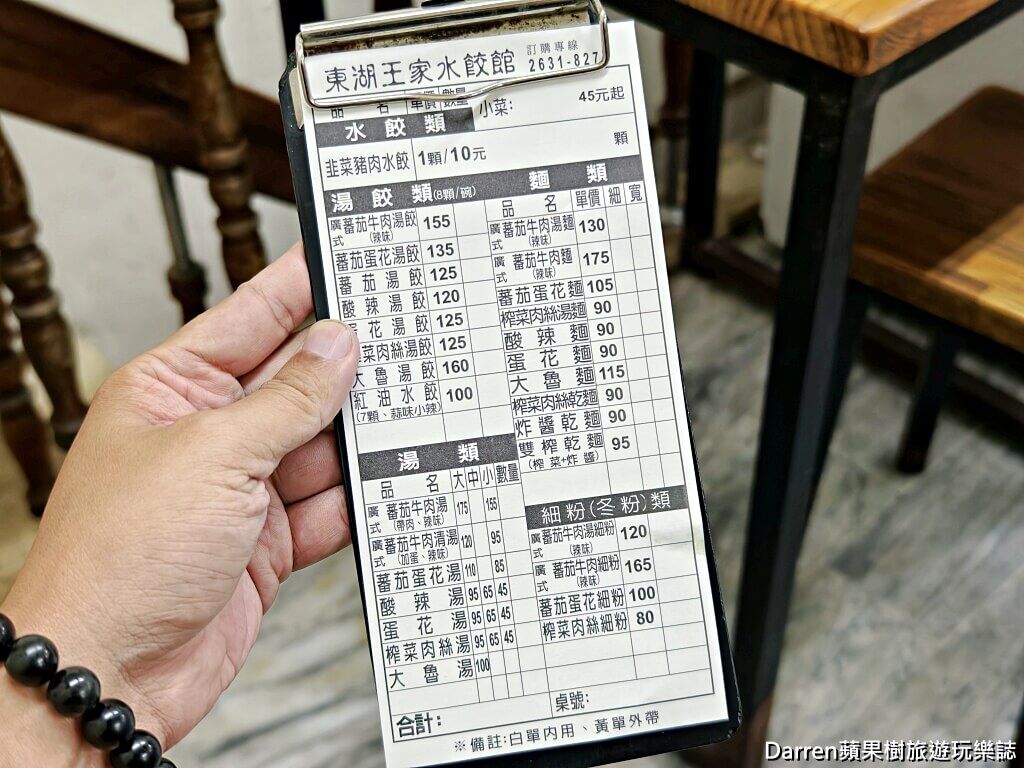 東湖王家水餃館 訂購專線 2631-827
品 名 單價 數量 小菜: 45元起
水餃類
韭菜豬肉水餃 1顆/10元 顆
湯餃類(8顆/碗)
廣式蕃茄牛肉湯餃(辣味) 155
蕃茄蛋花湯餃 135
蕃茄湯餃 125
酸辣湯餃 120
花湯餃 125
菜肉絲湯餃 125
大魯湯餃 160
紅油水餃 100
(7顆、蒜味小辣)
湯類
品 名 大 中 小 數量
廣式蕃茄牛肉湯(帶肉、辣味) 175 155
廣式蕃茄牛肉清湯(加蛋、辣味) 120 95
蕃茄蛋花湯 110 85
酸辣湯 95 65 45
蛋花湯 95 65 45
榨菜肉絲湯 95 65 45
大魯湯 100
麵類
品 名 單價 細 寬
廣式蕃茄牛肉湯麵(辣味) 130
廣式蕃茄牛肉麵(辣味) 175
蕃茄蛋花麵 105
榨菜肉絲湯麵 90
酸辣麵 90
蛋花麵 90
大魯麵 115
榨菜肉絲乾麵 90
炸醬乾麵 90
雙榨乾麵 95
(榨菜+炸醬)
細粉(冬粉)類
廣式蕃茄牛肉湯細粉(辣味) 120
廣式蕃茄牛肉細粉(辣味) 165
蕃茄蛋花細粉 100
榨菜肉絲細粉 80
合計: 桌號:
※備註:白單內用、黃單外帶
Darren蘋果樹旅遊玩樂誌